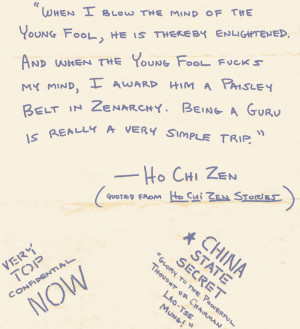 "When I blow the mind of the
Young Fool, he is thereby enlightened.
And when the Young Fool fucks
my mind, I award him a Paisley
Belt in Zenarchy. Being a Guru
is really a very simple trip."
— Ho Chi Zen
(quoted from Ho Chi Zen Stories)
VERY
TOP
CONFIDENTIAL
NOW
* CHINA
STATE
SECRET
"Glory to the Powerful
Thought of Chairman
Lao-Tse
Mung!"